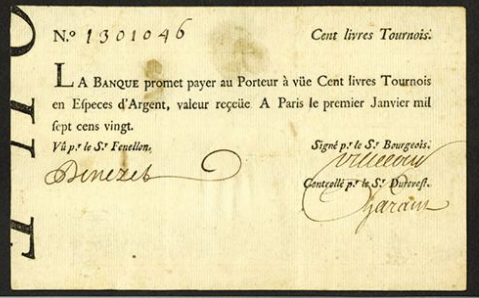 N.º 1301046 Cent livres Tournois.
LA BANQUE promet payer au Porteur à vüe Cent livres Tournois
en Especes d'Argent, valeur reçeüe A Paris le premier Janvier mil
sept cens vingt.
Vû p.r le S.r Fenellon. Signé p.r le S.r Bourgeois.
Controllé p.r le S.r Durevest.